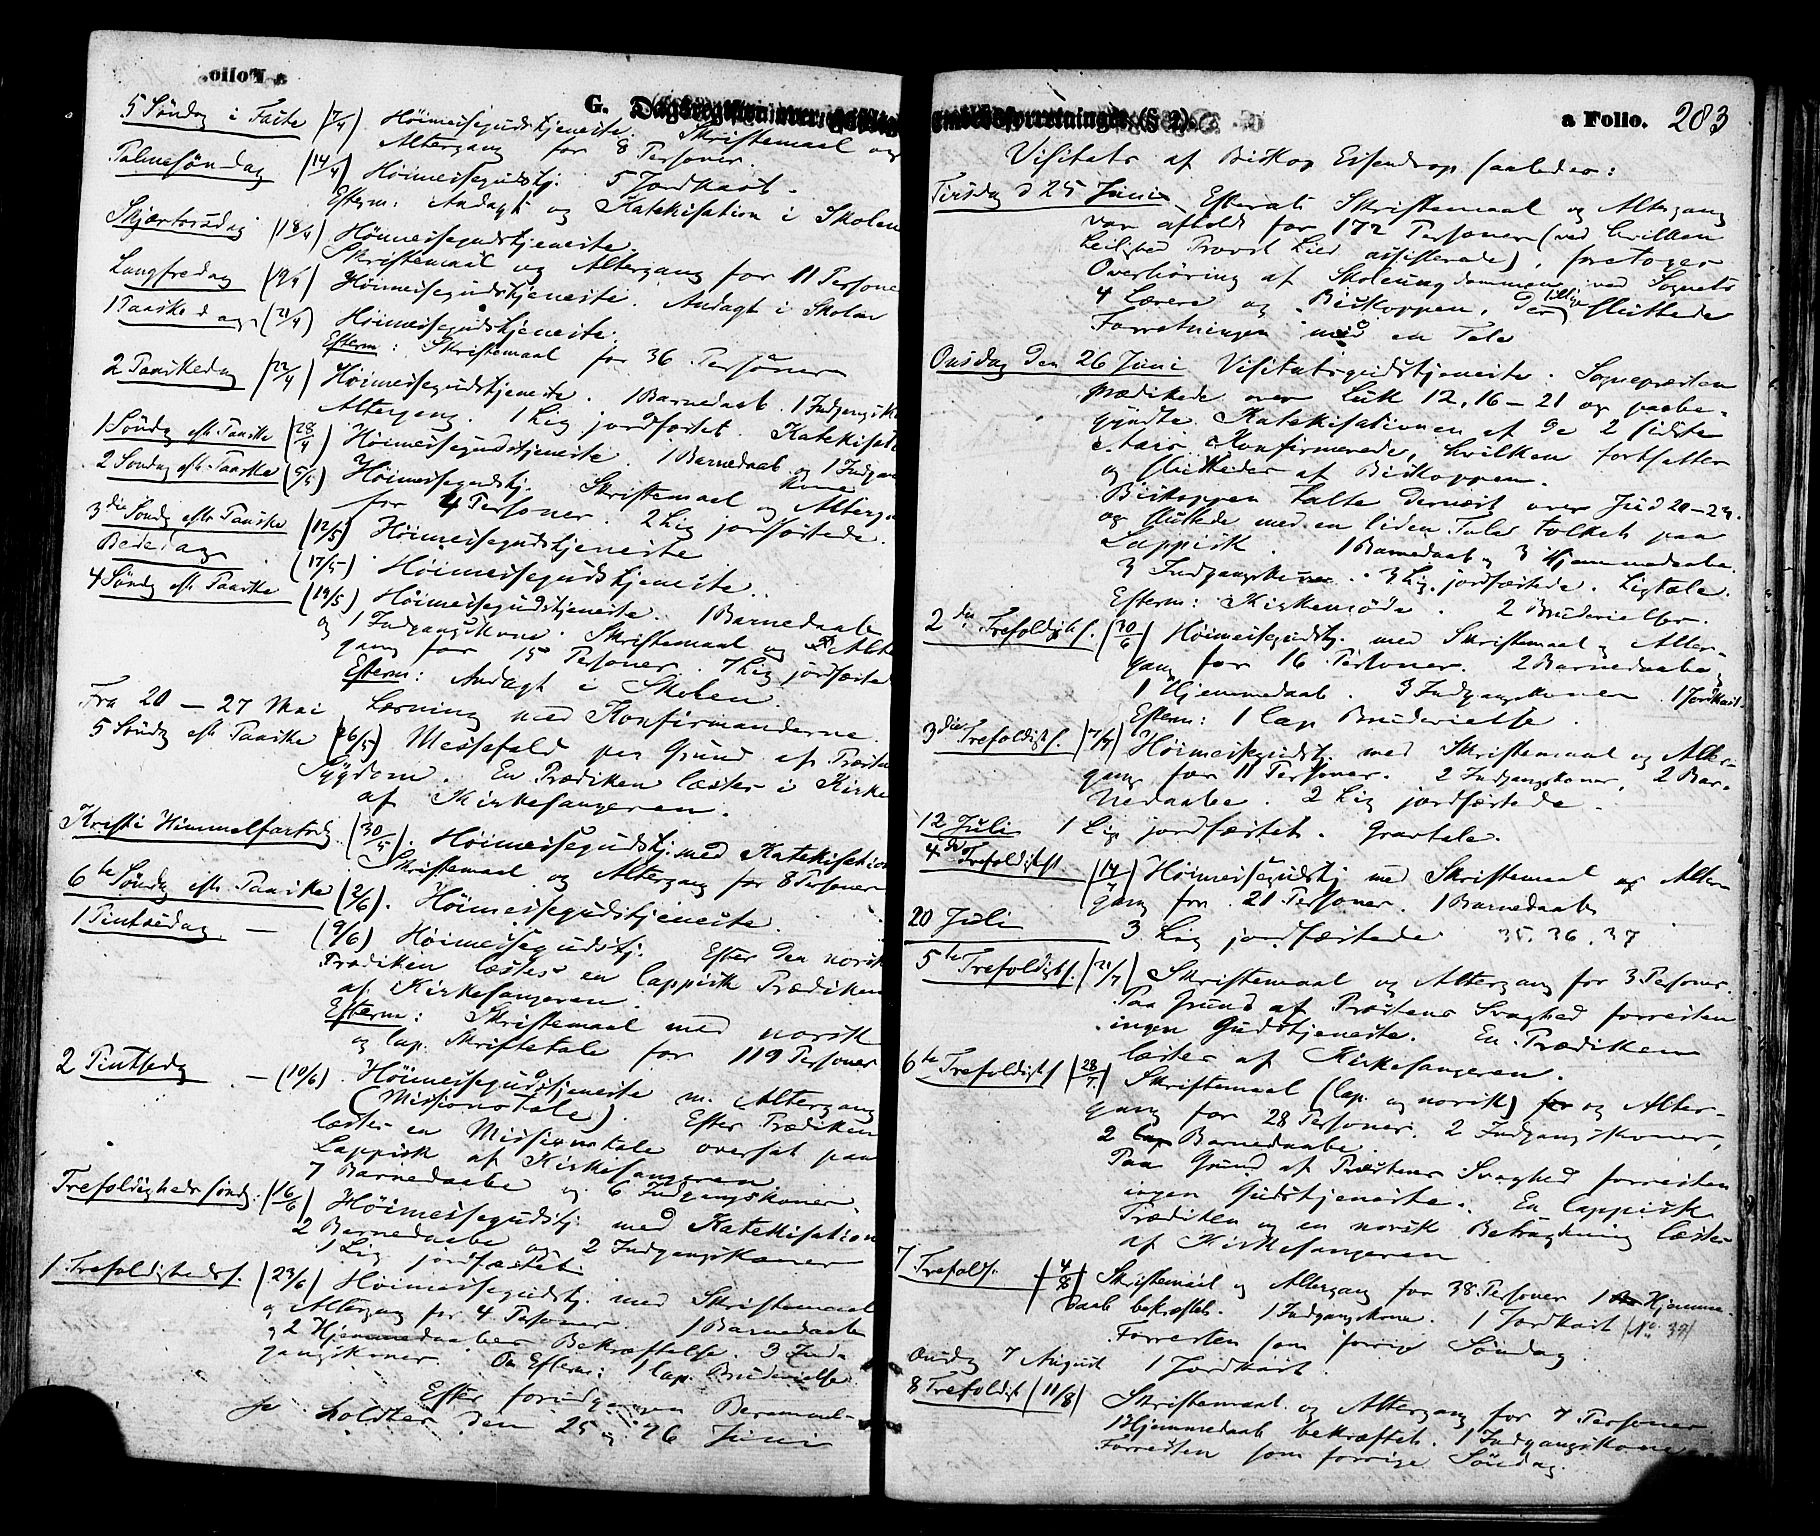 G. Dagsregister over geistlige
5 Søndag i Faste (7/4) Höimessegudstjeneste. Skriftemaal og
Altergang for 8 Personer.
Palmesøndag (14/4) Höimessegudstj. 5 Jordkast.
Efterm: Andagt og Katekisation i Skolen
Skjærtorsdag (18/4) Höimessegudstjeneste.
Skriftemaal og Altergang for 11 Persone
Langfredag (19/4) Höimessegudstjeneste. Andagt i Skolen
1 Paaskedag (21/4) Höimessegudstjeneste.
Efterm: Skriftemaal for 36 Personer
2 Paaskedag (22/4) Höimessegudstjeneste. 1 Barnedaab. 1 Indgangsk
Altergang. 1 Lig jordfæstet. Katekisati
1 Søndg eft. Paaske (28/4) Höimessegudstjeneste. 1 Barnedaab og 1 Indgan
kone
2 Søndag eft. Paaske (5/5) Höimessegudstj. Skriftemaal og Alterga
for 4 Personer. 2 Lig jordfæstede.
3die Søndg eft. Paaske (12/5) Höimessegudstjeneste
Bededag (17/5) Höimessegudstjeneste.
4 Søndg eft. Paaske (19/5) Höimessegudstjeneste. 1 Barnedaab
og 1 Indgangskone. Skriftemaal og Alter
gang for 15 Personer. 7 Lig jordfæstede
Efterm: Andagt i Skolen.
Fra 20 – 27 Mai Læsning med Konfirmanderne.
5 Søndg eft. Paaske (26/5) Messefald paa Grund af Præsten
Sygdom. En Prædiken læstes i Kirke
af Kirkesangeren.
Kristi Himmelfartsdg (30/5) Höimessegudstj. med Katekisation
Skriftemaal og Altergang for 8 Personer
6te Søndg eft. Paaske (2/6). Höimessegudstjeneste.
1 Pintsedag – (9/6) Höimessegudstj. Efter den norsk
Prædiken læstes en lappisk Prædiken
af Kirkesangeren.
Efterm: Skriftemaal med norsk
og lap. Skriftetale for 119 Personer
2 Pintsedg – (10/6). Höimessegudstjeneste m. Altergang
(Missionstale). Efter Prædiken
læstes en Missionstale oversat paa
Lappisk af Kirkesangeren.
7 Barnedaabe og 6 Indgangskoner.
Trefoldighedssöndg: (16/6) Höimessegudstj. med Katekisation
2 Barnedaabe og 2 Indgangskoner
1 Lig jordfæstet.
1. Trefoldighedsf. (23/6) Höimessegudstj. med Skriftemaal
og Altergang for 4 Personer. 1 Barnedaab
og 2 Hjemmedaabes Bekræftelse. 3 Ind-
gangskoner. Om Efterm: 1 lap. Brudevielse
Efter forudgaaen
holdtes den 25 og 26 Juni
embedsforretninger (§ 2).
a Folio. 283
Visitats af Biskop saaledes:
Tirsdag d 25 Juni. Efterat Skriftemaal og Altergang
var afholdt for 172 Personer (ved hvilken
Leilighed Provst Lied assisterede), foretoges
Overhöring af Skoleungdommen ved Sognets
4 Lærere og Biskoppen, der tillige sluttede
Forretningen med en Tale
Onsdag den 26 Juni Visitatsgudstjeneste. Sognepræsten
prædikede over Luk 12, 16–21 og paabe-
gyndte Katekisationen af de 2 sidste
Aars Konfirmerede, hvilken fortsattes
og sluttedes af Biskoppen.
Biskoppen talte dernæst over Jud 20–21.
og sluttede med en liden Tale tolket paa
Lappisk. 1 Barnedaab og 3 Hjemmedaabe.
3 Indgangskoner. 3 Lig jordfæstede. Ligtale.
Efterm: Kirkemøde. 2 Brudevielser.
2den Trefoldighf. (30/6) Höimessegudstj. med Skriftemaal og Alter-
gang for 16 Personer. 2 Barnedaabe,
1 Hjemmedaab. 3 Indgangskoner 1 Jordkast.
Efterm: 1 lap Brudevielse.
3die Trefoldigf. (7/7) Höimessegudstj. med Skriftemaal og Alter-
gang for 11 Personer. 2 Indgangskoner, 2 Bar-
nedaabe. 2 Lig jordfæstede.
12 Juli 1 Lig jordfæstet. Gravtale.
4de Trefoldighf (14/7) Höimessegudstj med Skriftemaal og Alter-
gang for 21 Personer. 1 Barnedaab
20 Juli 3 Lig jordfæstede 35. 36. 37
5te Trefoldigf. (21/7) Skriftemaal og Altergang for 3 Personer.
Paa Grund af Præstens Svaghed forresten
ingen Gudstjeneste. En Prædiken
læstes af Kirkesangeren.
6te Trefoldigf (28/7) Skriftemaal (lap. og norsk) og Alter-
gang for 28 Personer. 2 Indgangskoner,
2 lap Barnedaabe.
Paa Grund af Præstens Svaghed forresten
ingen Gudstjeneste. En lappisk
Prædiken og en norsk Betragtning læstes
af Kirkesangeren
7 Trefoldf. (4/8) Skriftemaal og Altergang for 38 Personer 1 Hjemme-
daab bekræftet. 1 Indgangskone. 1 Jordkast (No 39)
Forresten som forrige Søndag.
Onsdg 7 August 1 Jordkast.
8 Trefoldigf (11/8) Skriftemaal og Altergang for 7 Personer
1 Hjemmedaab bekræftet. 1 Indgangskone
Forresten som forrige Søndag.